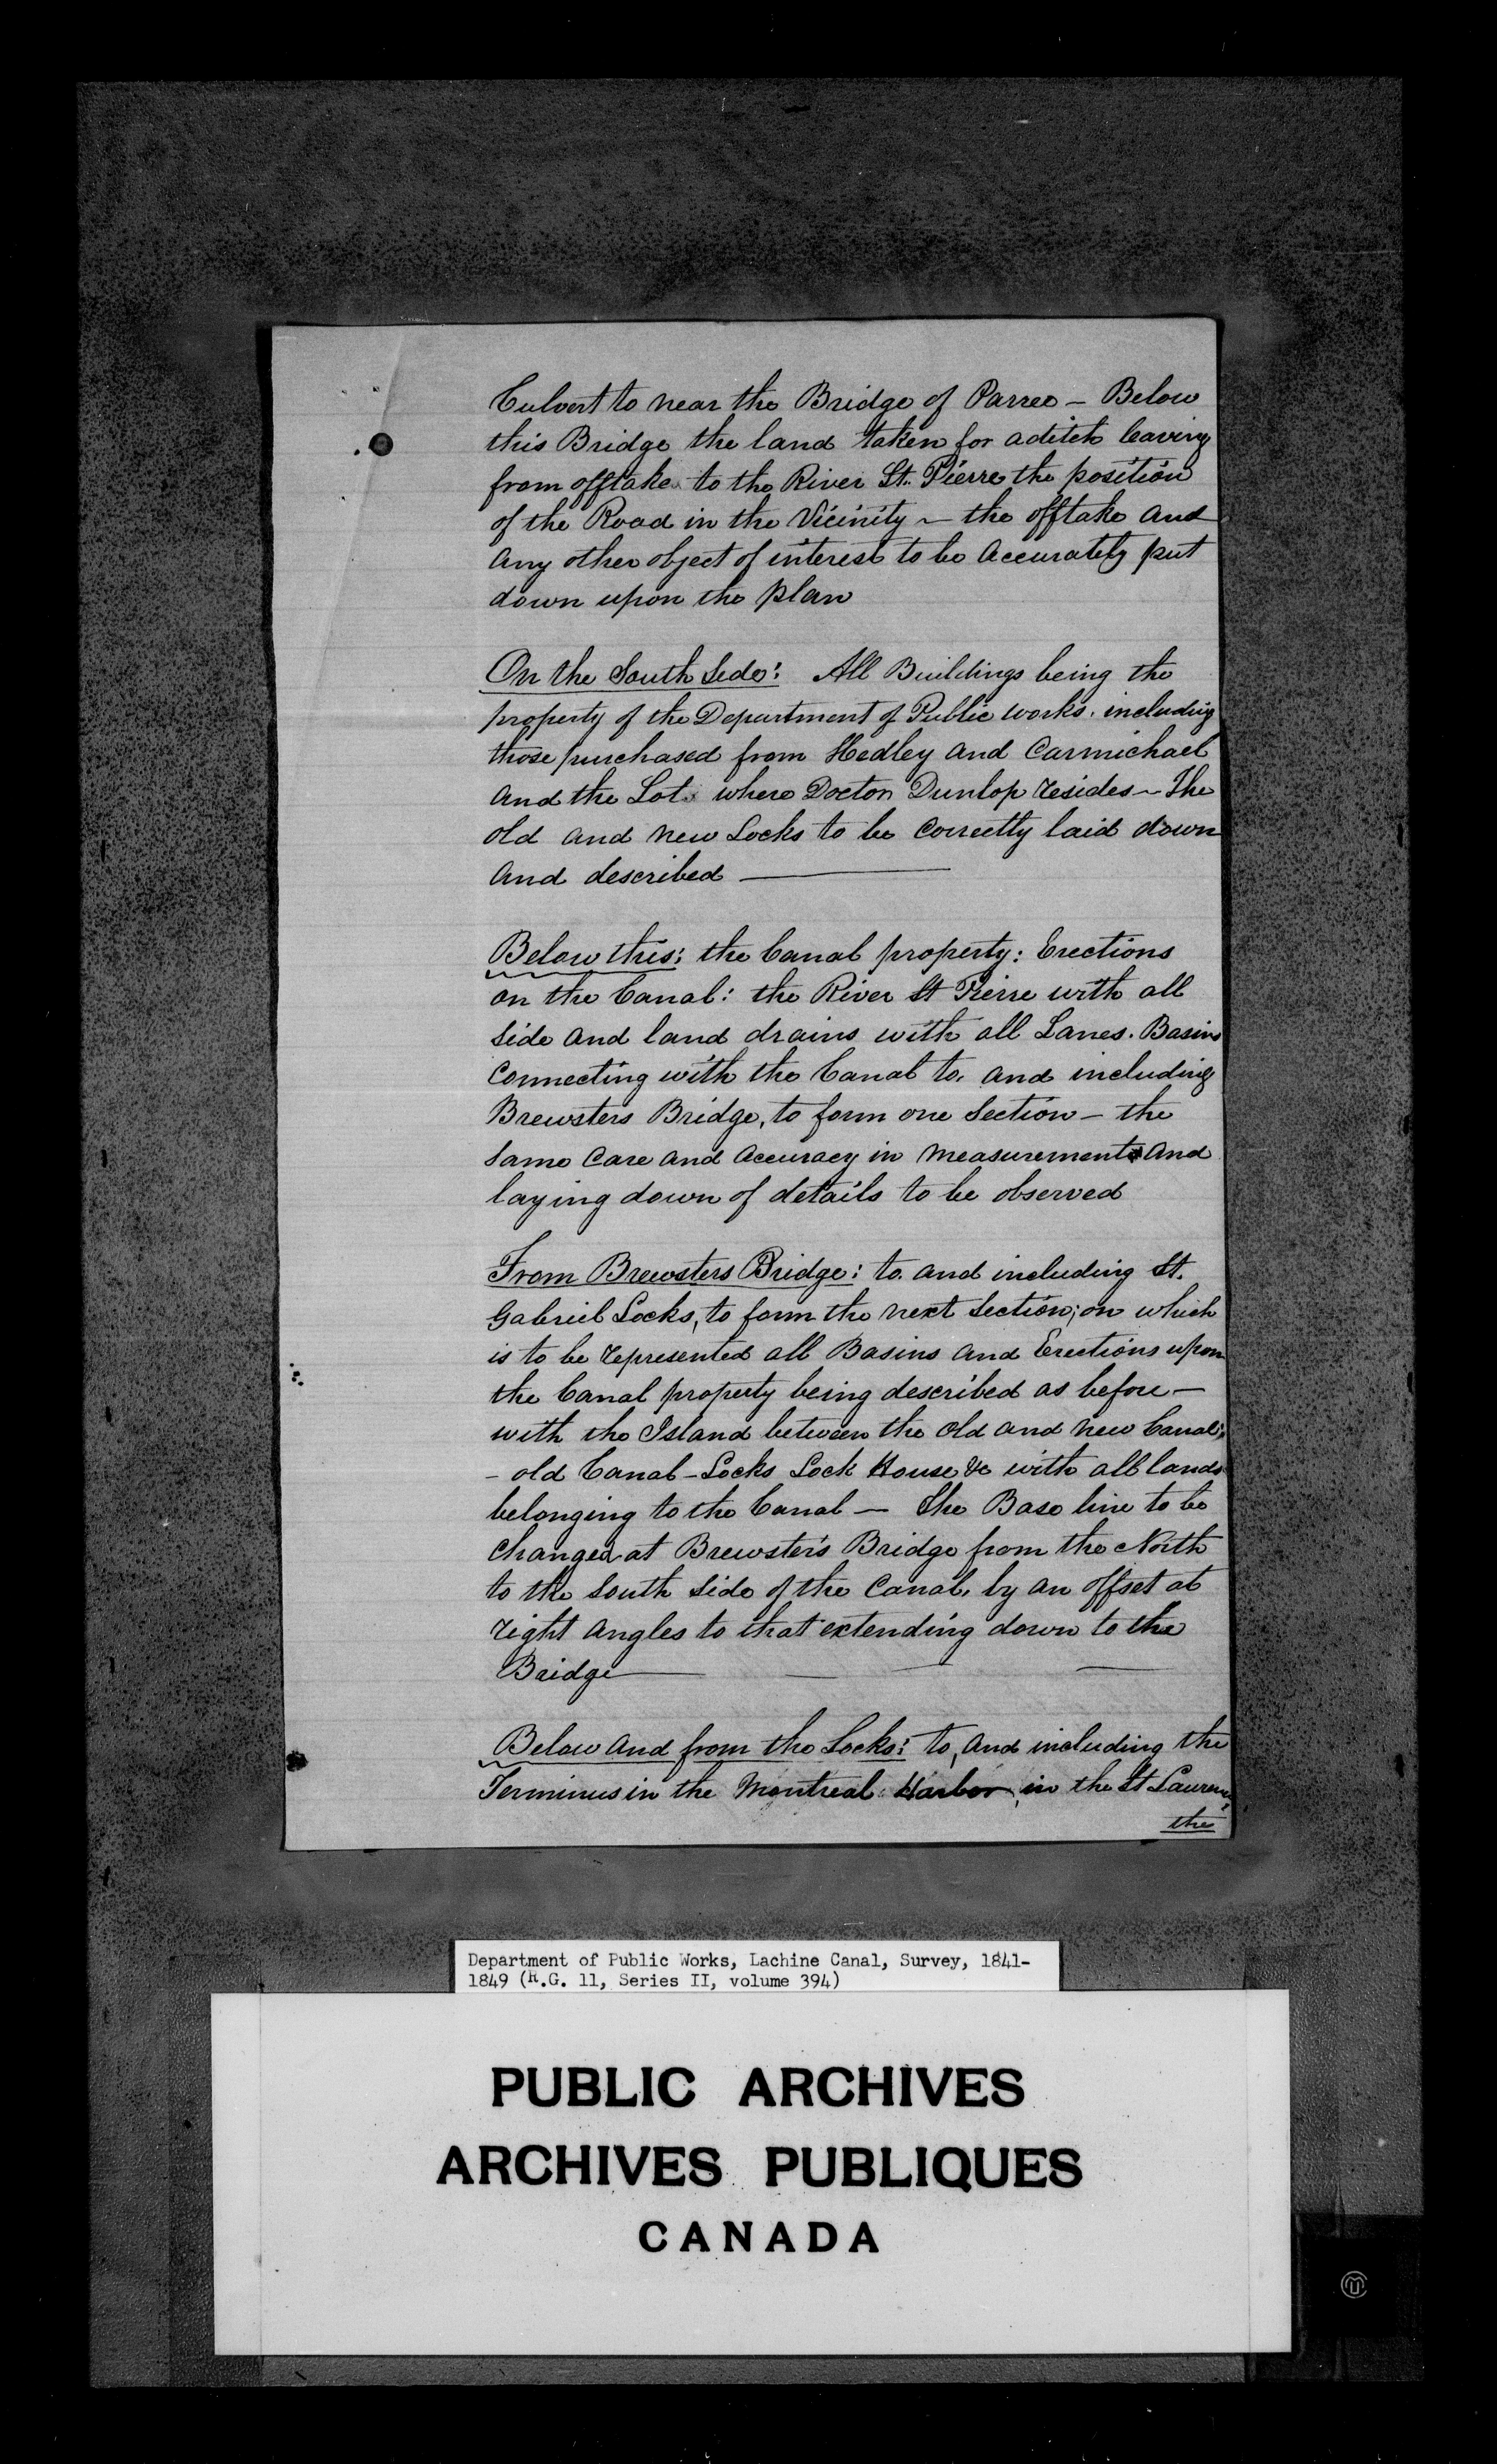 Culvert to near the Bridge of Parree – Below
this Bridge the land taken for a ditch leaving
from offtake to the River St. Pierre the position
of the Road in the Vicinity – the offtake and
any other object of interest to be accurately put
down upon the plan
On the South Side: All Buildings being the
property of the Department of Public works. including
those purchased from Hedley and Carmichael
and the Lot where Doctor Dunlop resides – The
old and new Locks to be Correctly laid down
and described
Below this: the Canal property: Erections
on the Canal: the River St Pierre with all
side and land drains with all Lanes. Basins
Connecting with the Canal to, and including
Brewsters Bridge, to form one Section – the
same Care and accuracy in measurements and
laying down of details to be observed
From Brewsters Bridge: to and including St.
Gabriel Locks, to form the next Section; on which
is to be represented all Basins and Erections upon
the Canal property being described as before –
with the Island between the old and new Canal,
– old Canal – Locks Lock House &c with all lands
belonging to the Canal – The Base line to be
Changed at Brewster's Bridge from the North
to the South Side of the Canal, by an offset at
right angles to that extending down to the
Bridge
Below and from the Locks: to, and including the
Terminus in the Montreal Harbor, in the St Lawrence,
the
Department of Public Works, Lachine Canal, Survey, 1841-
1849 (R.G. 11, Series II, volume 394)
PUBLIC ARCHIVES
ARCHIVES PUBLIQUES
CANADA